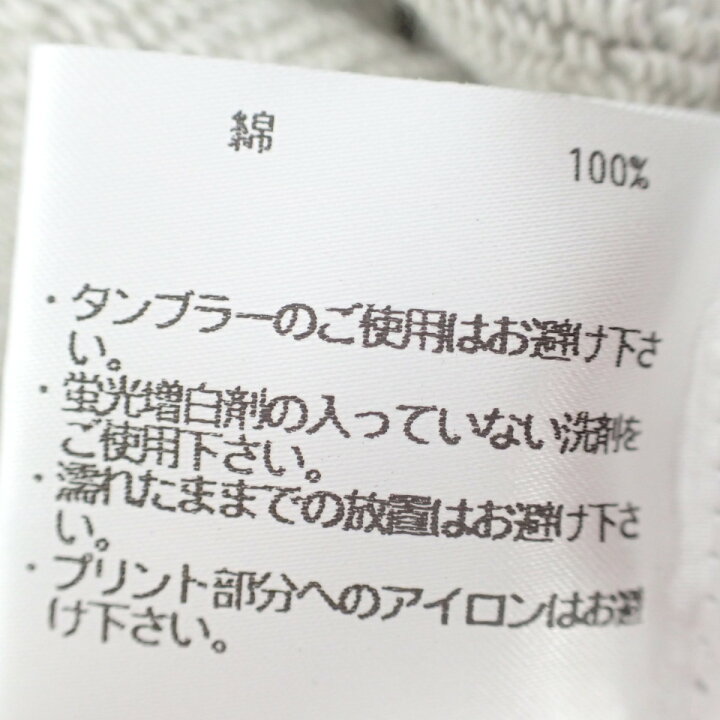 綿 100%
・タンブラーのご使用はお避け下さ
い。
・蛍光増白剤の入っていない洗剤を
ご使用下さい。
・濡れたままでの放置はお避け下さ
い。
・プリント部分へのアイロンはお避
け下さい。